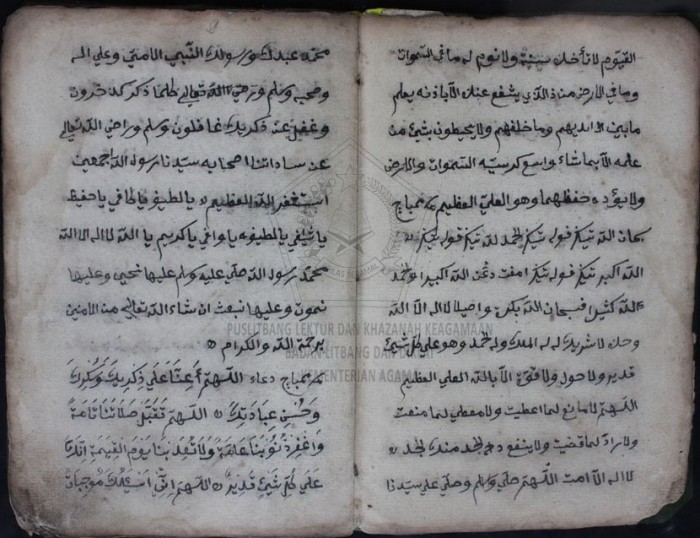 القيّوم لا تأخذه سنة ولا نوم له ما في السموات
وما في الارض من ذا الذي يشفع عنده الا باذنه يعلم
ما بين ايديهم وما خلفهم ولا يحيطون بشيئ من
علمه الا بما شاء واسع كرسيه السموات والارض
ولا يؤده حفظهما وهو العليّ العظيم
سبحان الله الحمد لله
الله اكبر الله اكبر الحمد
لله كثيرا فسبحان الله بكرة واصيلا لا اله الا الله
وحده لا شريك له له الملك وله الحمد وهو على كل شيئ
قدير ولا حول ولا قوّة الا بالله العلي العظيم
اللهم لا مانع لما اعطيت ولا معطي لما منعت
ولا رادّ لما قضيت ولا ينفع ذ الجد منك الجد
لا اله الا انت اللهم صلي وسلم وصلي على سيدنا
محمد عبدك ورسولك النّبي الامي وعلى اله
وصحبه وسلم ورضي الله تعالى كلما ذكرك ذكرون
وغفل عن ذكريك غافلون وسلم وراضي الله تعالى
عن ساداتنا اصحابه سيدنا رسول الله اجمعين
استغفر الله العظيم يا لطيف يا كافي يا حفيظ
يا شافي يا لطيف يا وافي يا كريم يا الله لا اله الا الله
محمد رسول الله صلى عليه وسلم عليها نحيى وعليها
نموت وعليها نبعث ان شاء الله تعالى من الامنين
برحمة الله والكرام
دعاء اللهم أعنا على ذكريك وشكرك
وحسن عبادتك اللهم تقبل صلاتنا تامة
واغفر ذنوبنا عامة ولا تعذبنا يوم القيمة انك
على كل شيئ قدير اللهم اني اسئلك موجبات
PUSLITBANG LEKTUR DAN KHAZANAH KEAGAMAAN
BADAN LITBANG DAN DIKLAT
KEMENTERIAN AGAMA